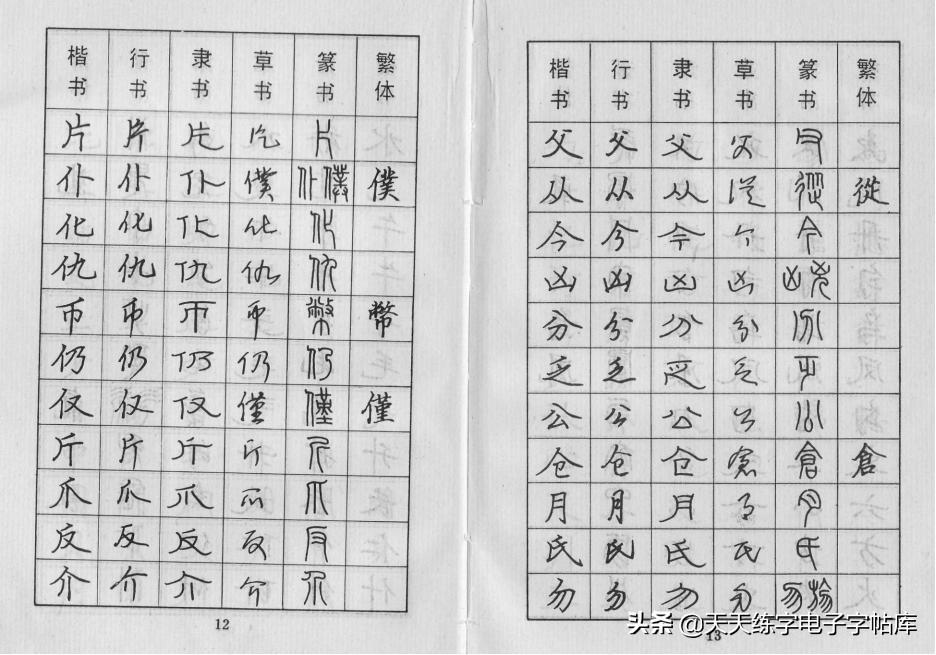 楷书 行书 隶书 草书 篆书 繁体
片 片 片 片 片
仆 仆 仆 僕 仆僕 僕
化 化 化 化 化
仇 仇 仇 仇 仇
币 币 币 币 幣 幣
仍 仍 仍 仍 仍
仅 仅 仅 僅 僅 僅
斤 斤 斤 斤 斤
爪 爪 爪 爪 爪
反 反 反 反 反
介 介 介 介 介
12
楷书 行书 隶书 草书 篆书 繁体
父 父 父 父 父
从 从 从 從 從 從
今 今 今 今 今
凶 凶 凶 凶 凶兇
分 分 分 分 分
乏 乏 乏 乏 乏
公 公 公 公 公
仓 仓 仓 倉 倉 倉
月 月 月 月 月
氏 氏 氏 氏 氏
勿 勿 勿 勿 勿
13
头条 @天天练字电子字帖库